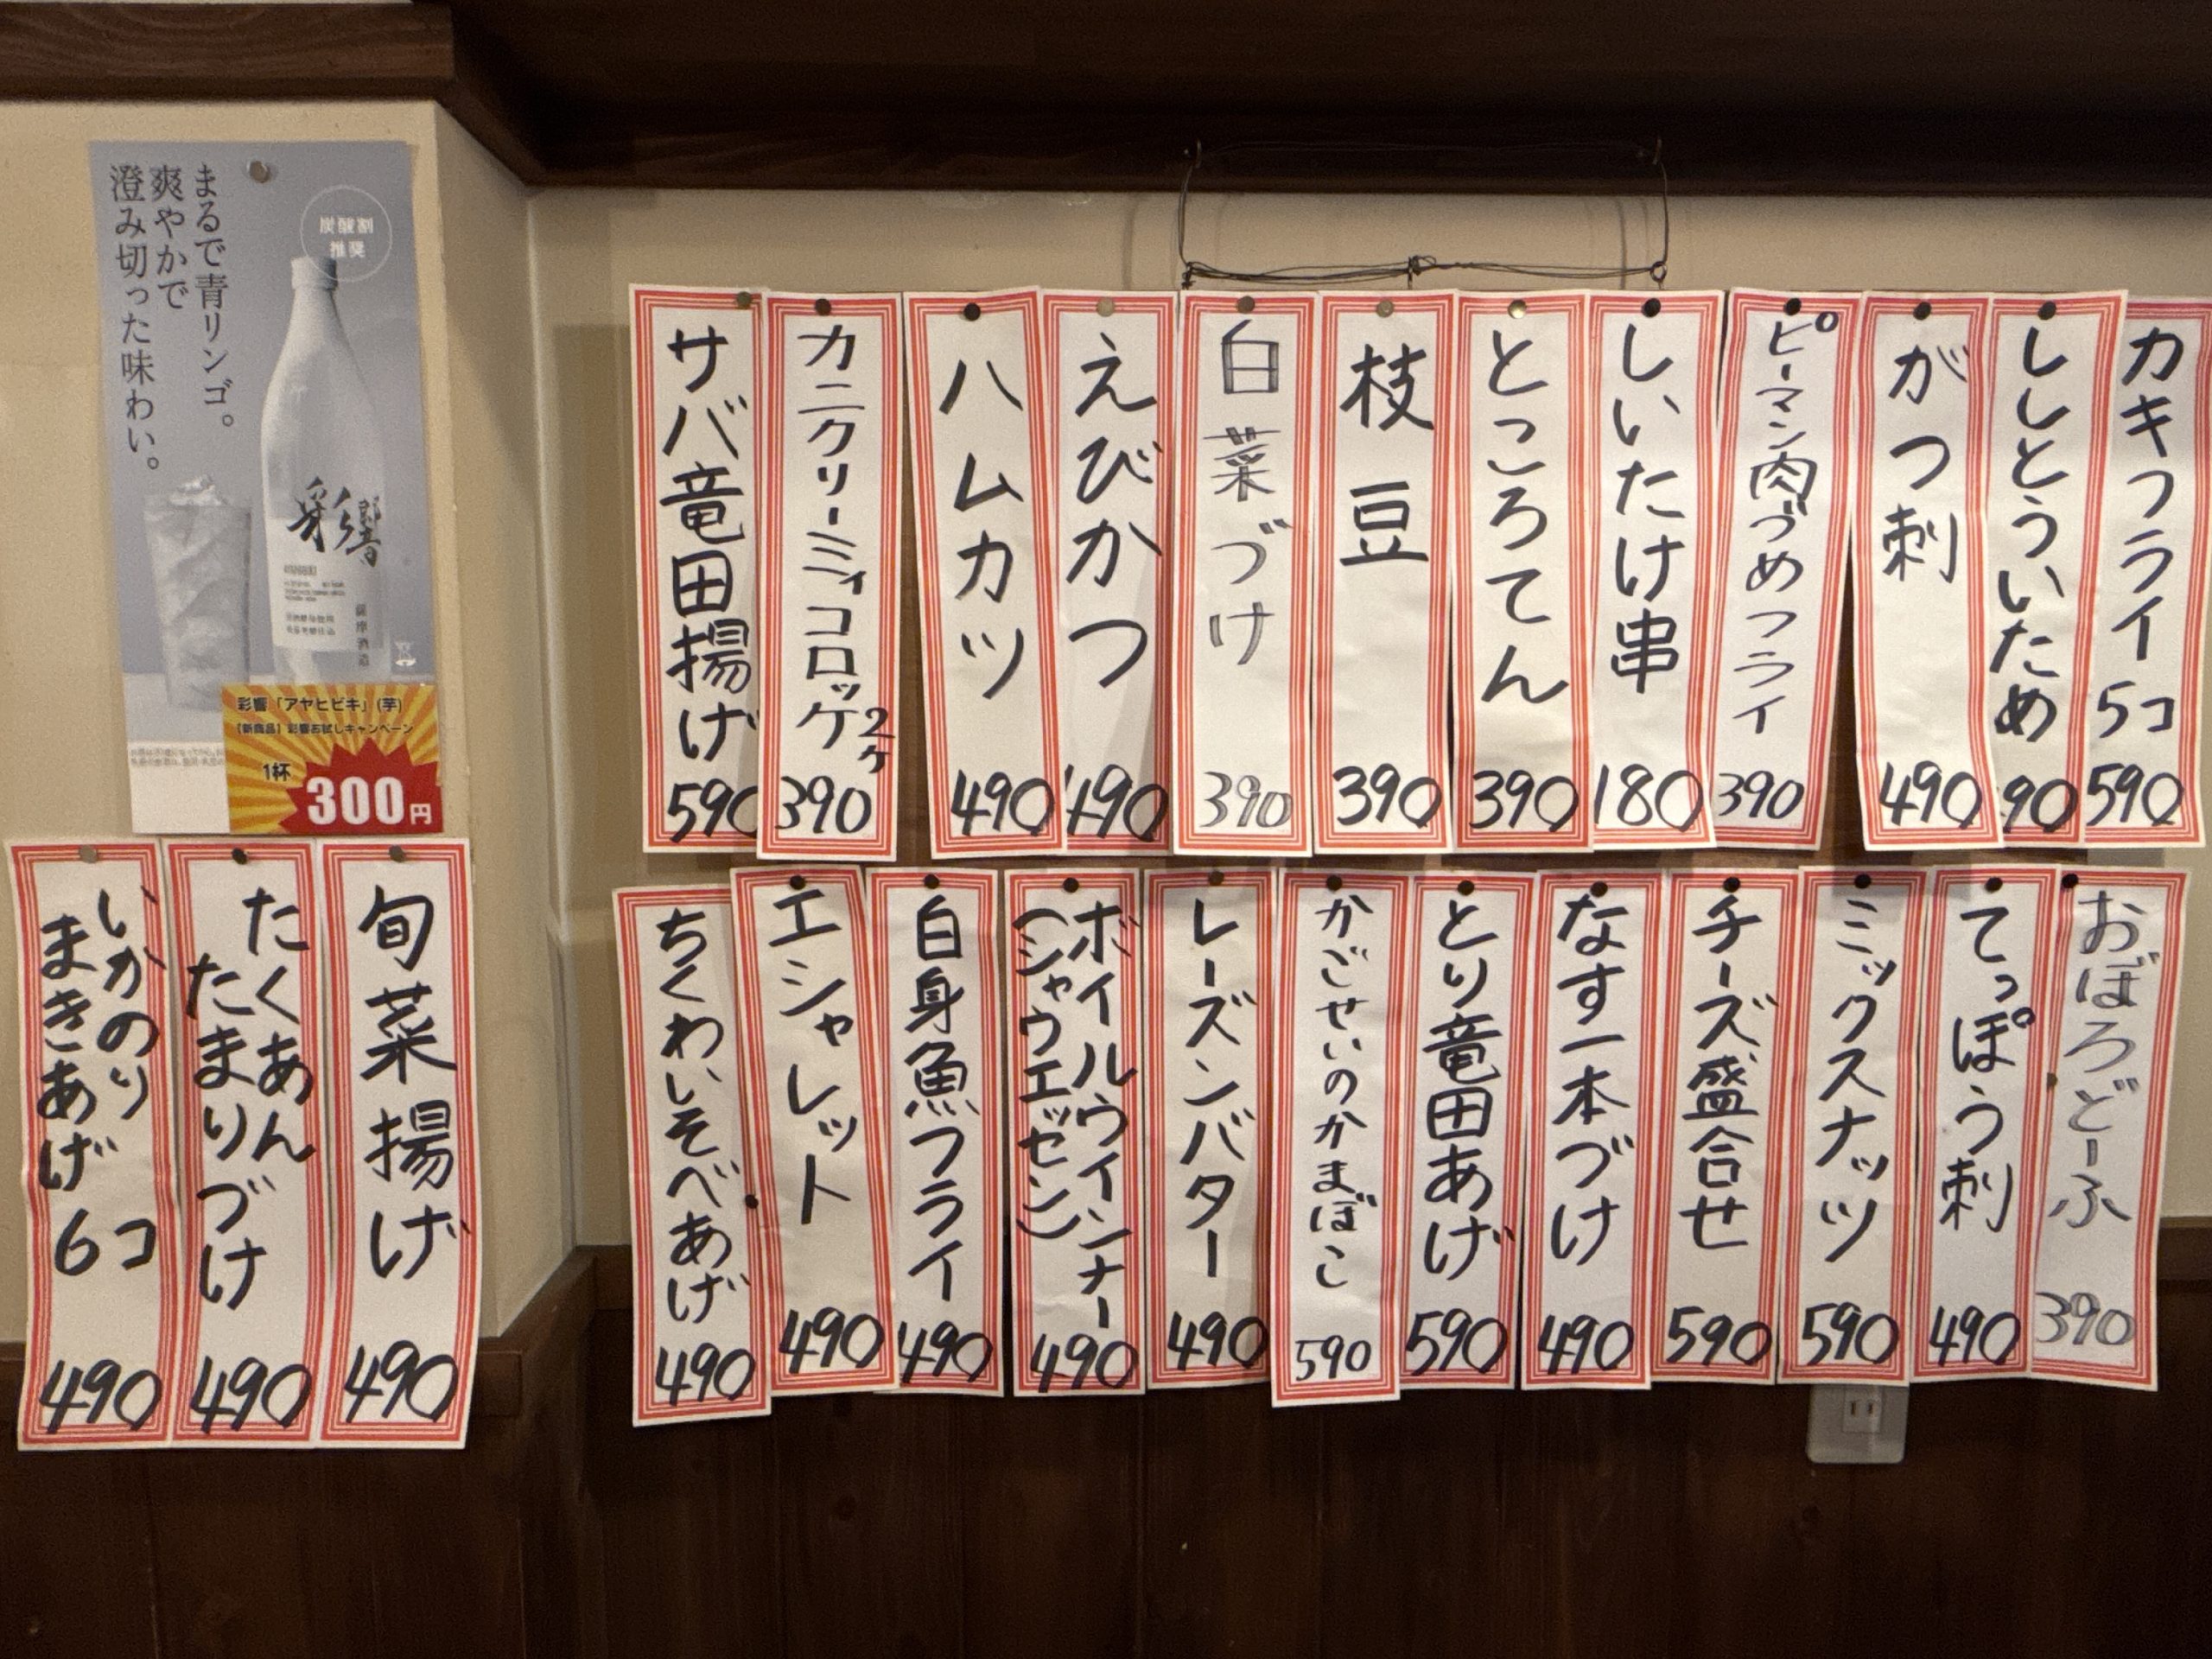 まるで青リンゴ。
爽やかで
澄み切った味わい。
炭酸割
推奨
彩響
彩響「アヤヒビキ」(芋)
【新商品】彩響お試しキャンペーン
1杯
300円
カキフライ 5コ
590
ししとういため
90
がつ刺
490
ピーマン肉づめフライ
390
しいたけ串
180
ところてん
390
枝豆
390
白菜づけ
390
えびかつ
490
ハムカツ
490
カニクリーミィコロッケ 2ケ
390
サバ竜田揚げ
590
おぼろどーふ
390
てっぽう刺
490
ミックスナッツ
590
チーズ盛合せ
590
なす一本づけ
490
とり竜田あげ
590
かごせいのかまぼこ
590
レーズンバター
490
ボイルウインナー
(シャウエッセン)
490
白身魚フライ
490
エシャレット
490
ちくわいそべあげ
490
旬菜揚げ
490
たくあん
たまりづけ
490
いかのり
まきあげ 6コ
490